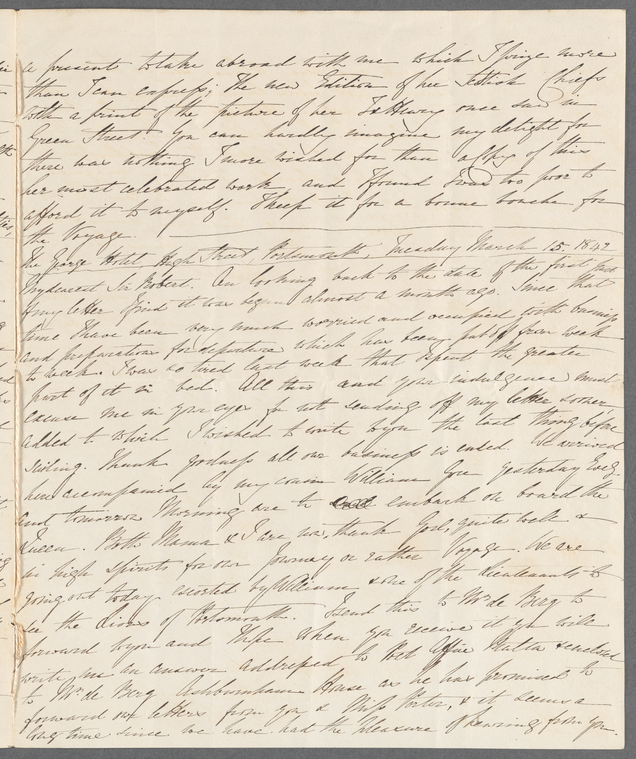 a present to take abroad with me which I prize more
than I can express; The new Edition of her Scottish Chiefs
with a print of the picture of her Sr Henry once saw in
Green Street. You can hardly imagine my delight for
there was nothing I more wished for than a copy of this
her most celebrated work and I found I was too poor to
afford it to myself. I keep it for a bonne bouche for
the Voyage.
The George Hotel High Street, Portsmouth, Tuesday March 15. 1842
My dearest Sir Robert. On looking back to the date of the first part
of my letter I find it was begun almost a month ago. Since that
time I have been very much worried and occupied with business
and preparations for departure which has been put off from week
to week. I was so tired last week that I spent the greater
part of it in bed. All this and your indulgence must
excuse me in your eyes for not sending off my letter sooner,
added to which I wished to write to you the last thing before
sailing. Thank goodness all our business is ended. We arrived
here accompanied by my cousin William yesterday Eveg.
and tomorrow Morning are to embark on board the
Queen. Both Mama & I are now, thank God, quite well &
in high spirits for our Journey or rather Voyage. We are
going out today escorted by William & one of the Lieutenants to
see the Lions of Portsmouth. I send this to Mr de Berg to
forward to you and I hope when you receive it you will
write me an answer addressed to Post Office Malta enclosed
to Mr de Berg Ashburnham House as he has promised to
forward our letters from you & Miss Porter, & it seems a
long time since we have had the pleasure of hearing from you.